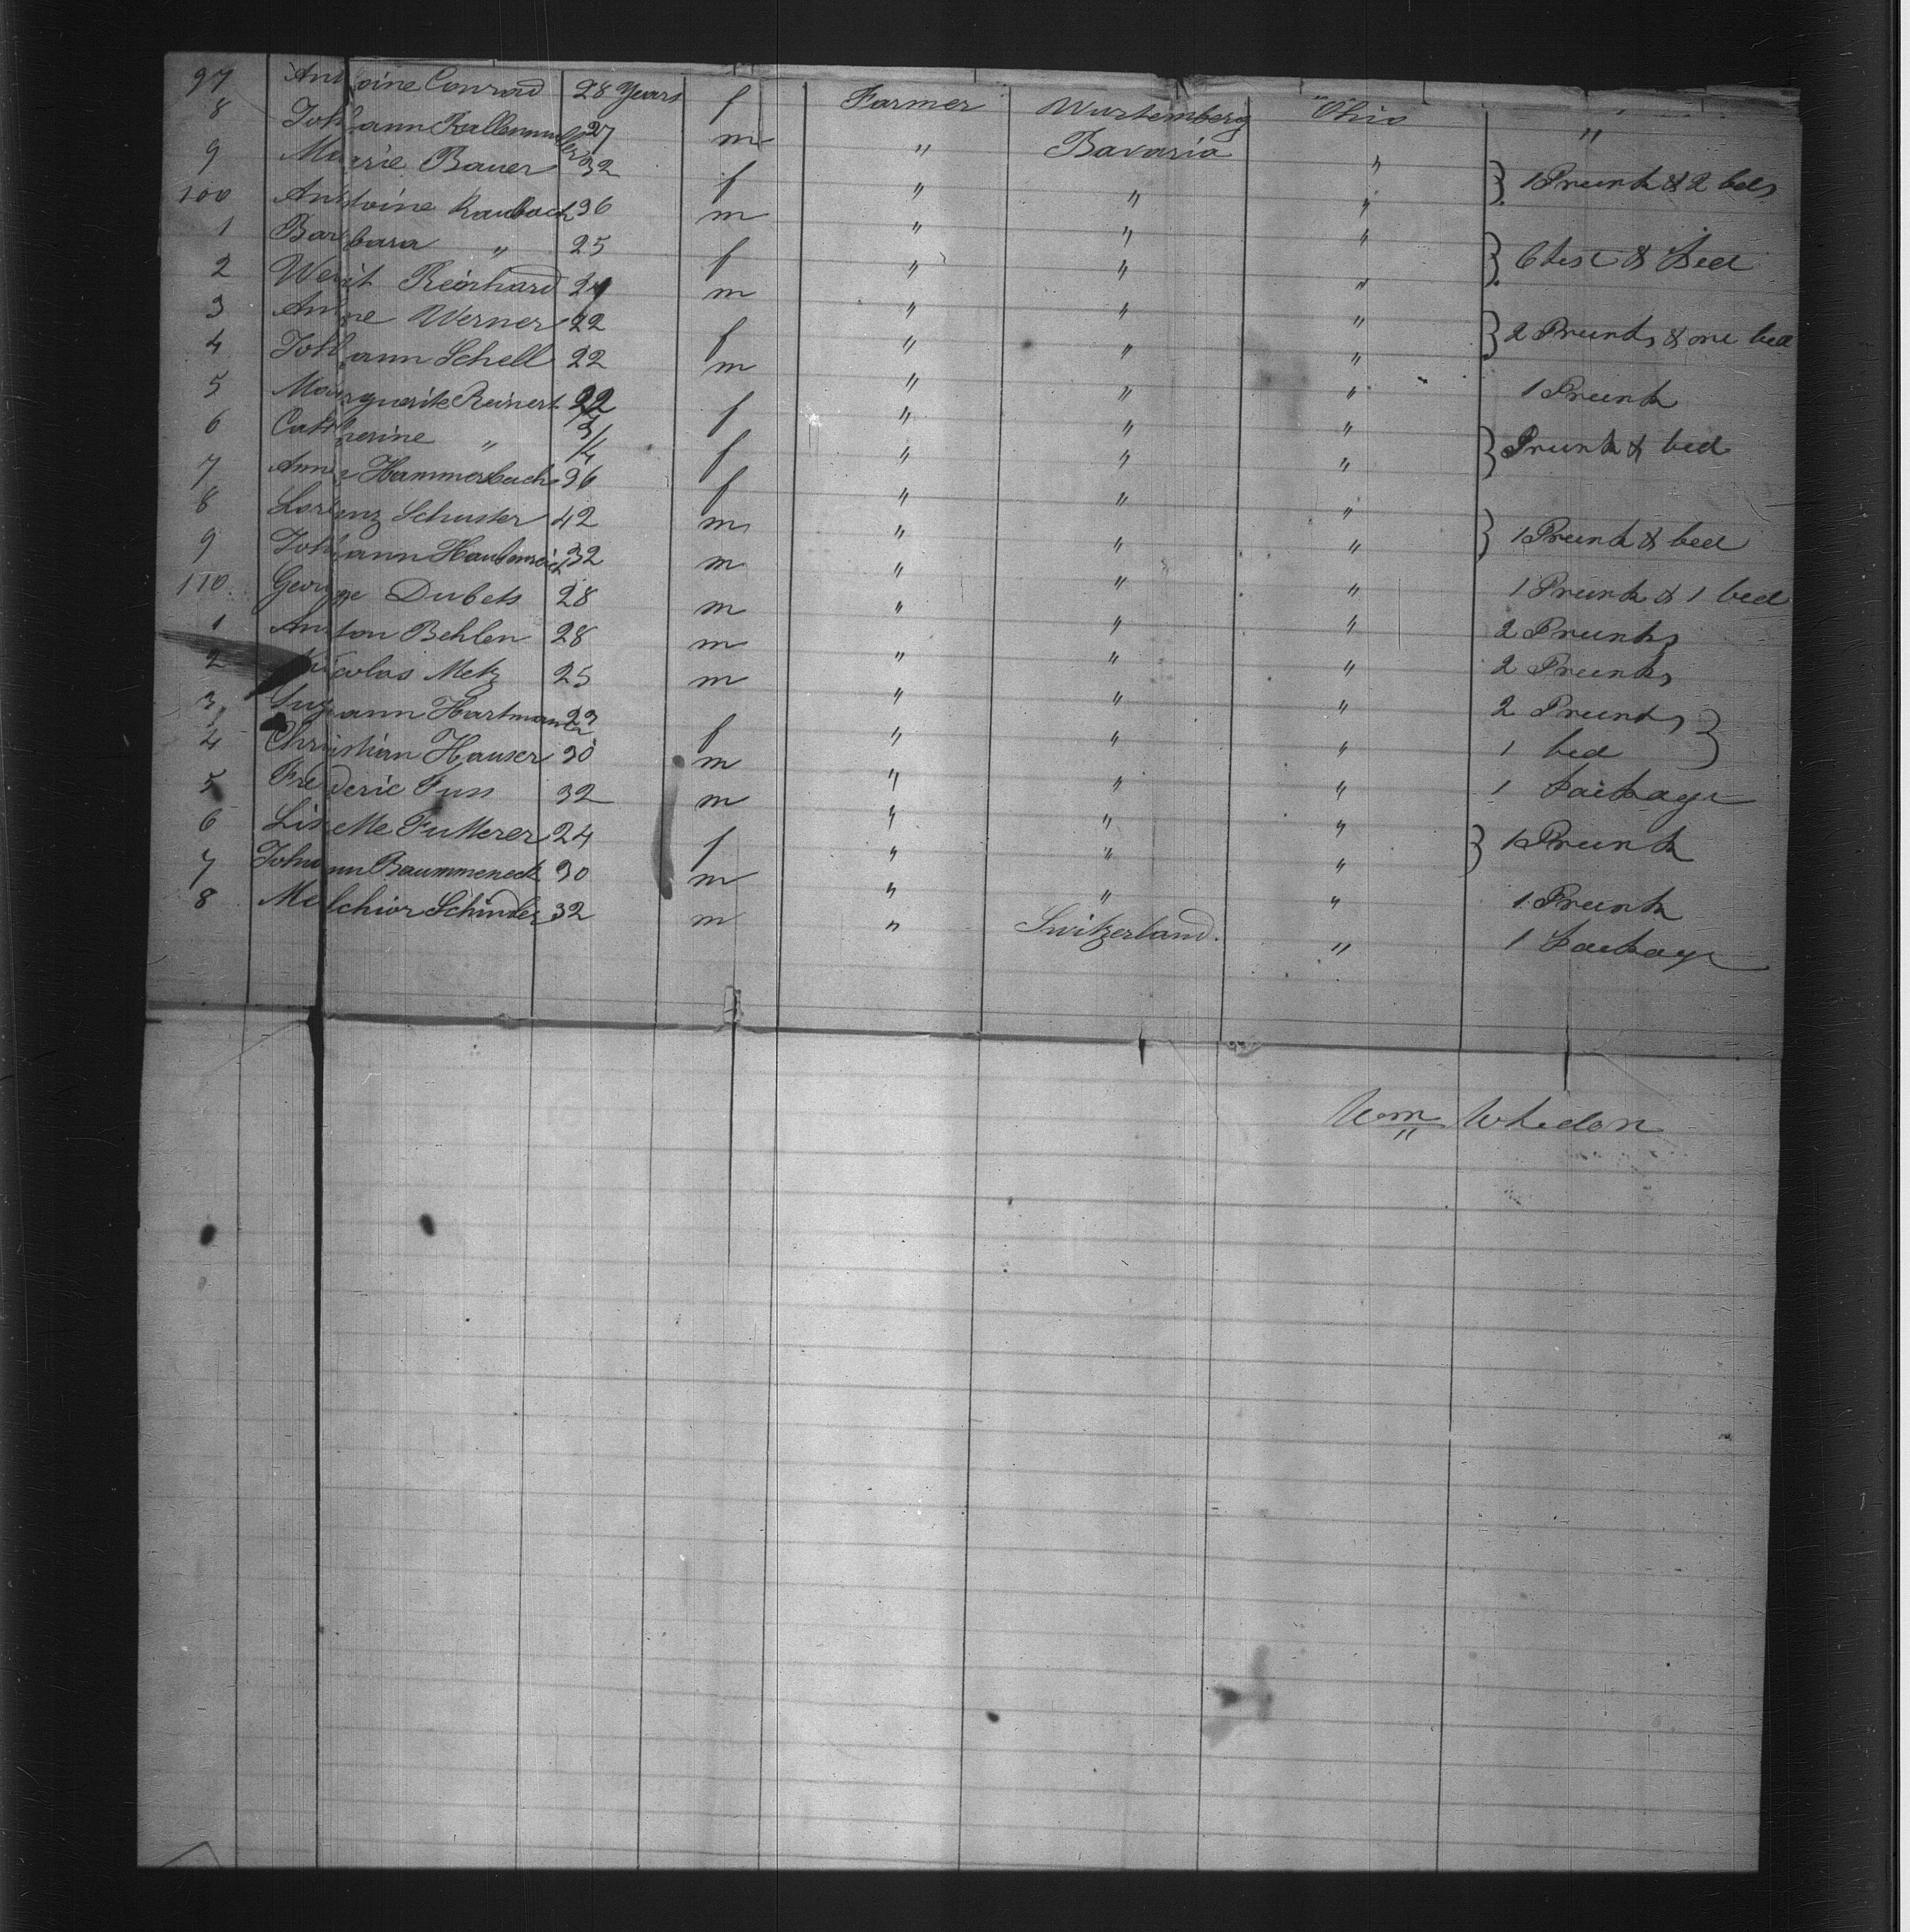 97 Antoine Conrad 28 Years f Farmer Wurtemberg Ohio "
8 Johann Ballenmuller 27 m " Bavaria "
9 Marie Bauer 32 f " " " } 1 Trunk & 2 beds
100 Antoine Raubach 36 m " " "
1 Barbara " 25 f " " " } Chest & Bed
2 Weit Reinhard 24 m " " "
3 Anne Werner 22 f " " " } 2 Trunks & one bed
4 Johann Schell 22 m " " " 1 Trunk
5 Marguerite Reinert 22 f " " "
6 Catherine " 3/4 f " " " } Trunk & bed
7 Anna Hammerbach 36 f " " "
8 Lorenz Schuster 42 m " " " } 1 Trunk & bed
9 Johann 32 m " " " 1 Trunk & 1 bed
110 George Dubets 28 m " " " 2 Trunks
1 Anton Behlen 28 m " " " 2 Trunks
2 Nicolas Metz 25 m " " " 2 Trunks
3 Suzann Hartmann 23 f " " " 1 bed }
4 Christian Hauser 30 m " " " 1 Package
5 Frederic Fuss 32 m " " "
6 Lisette Futterer 24 f " " " } 1 Trunk
7 Johann Baummeneck 30 m " " " 1 Trunk
8 Melchior Schindler 32 m " Switzerland. " 1 Package
Wm Whedon